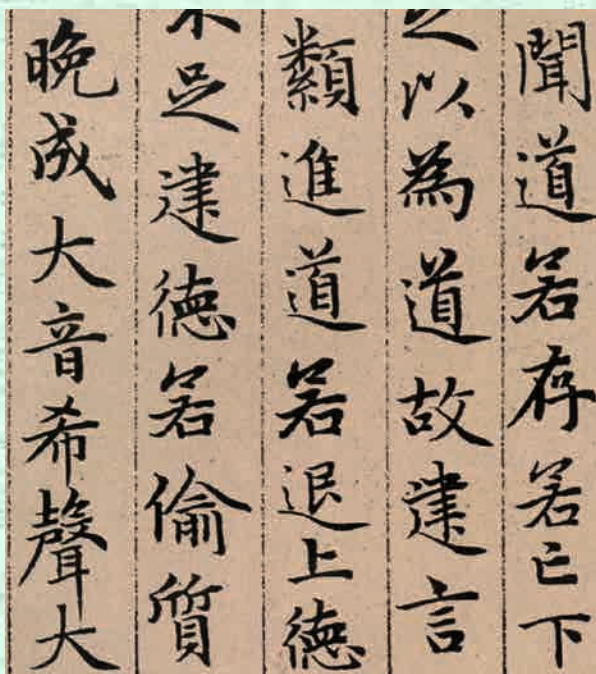 聞道若存若亡下
之以為道故建言
纇進道若退上德
不足建德若偷質
晚成大音希聲大